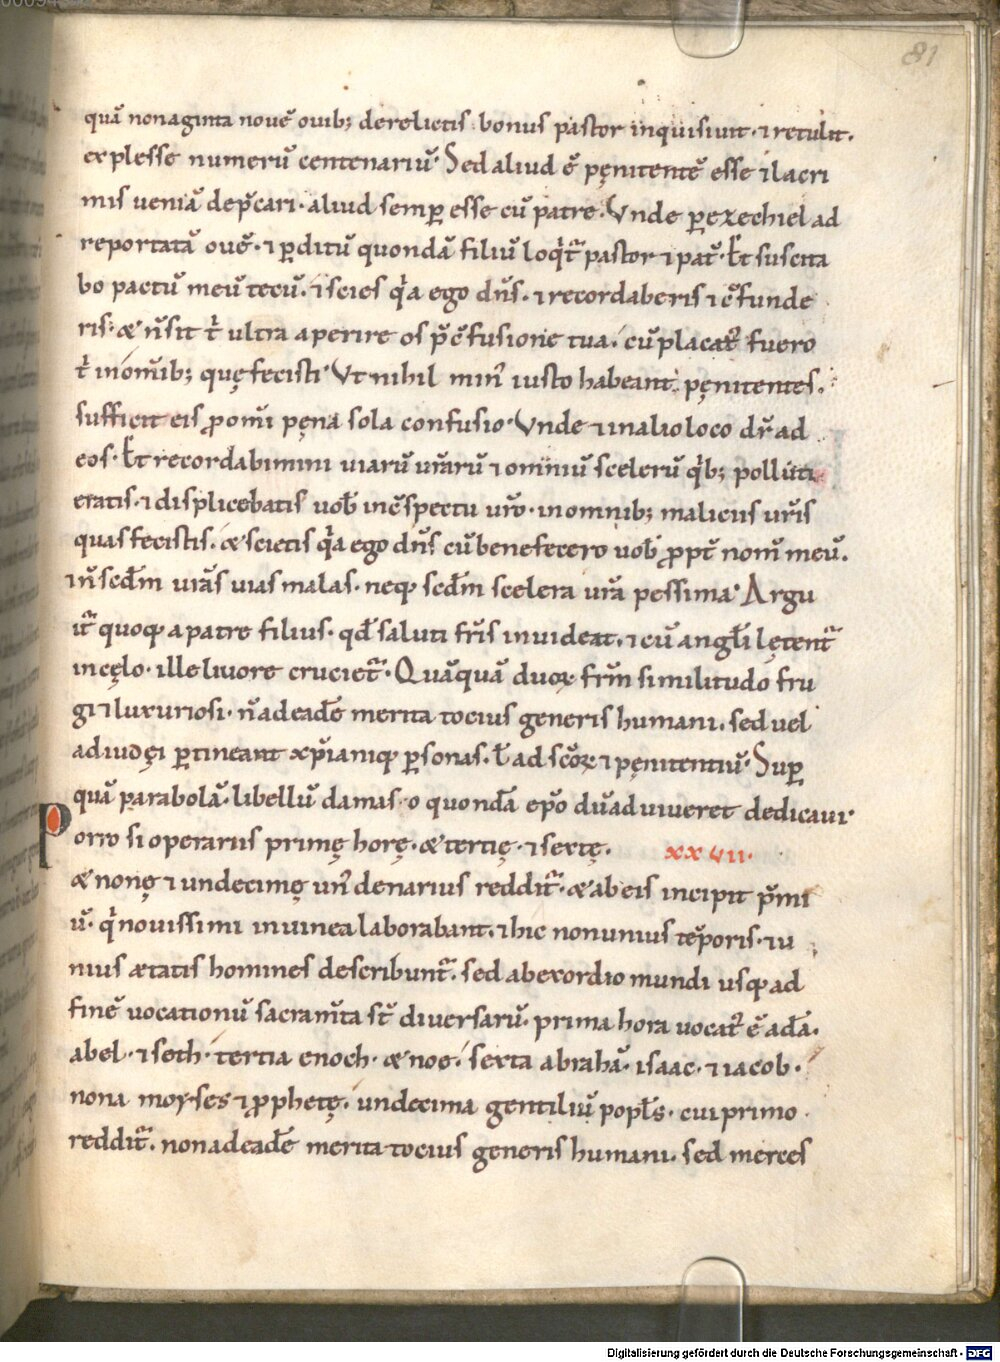 81
quā nonaginta nouē ouib; derelictis bonus pastor inquisiuit · ⁊ retulit.
explesse numerū centenariū· Sed aliud ē pęnitentē esse ⁊ lacri
mis ueniā dep̄cari · aliud semꝑ esse cū patre. Vnde ꝑ ezechiel ad
reportatā ouē · ⁊ ꝑditū quondā filiū loqͥt᷑ pastor ⁊ pat᷑ · Et suscita
bo pactū meū tecū. ⁊ scies qͥa ego dn̄s. ⁊ recordaberis ⁊ c̄funde
ris· & n̄ sit tͥ ultra aperire os p̄ c̄fusione tua. cū placat᷑ fuero
tͥ in om̄ib; quę fecisti· Vt nihil min᷑ iusto habeant pęnitentes.
sufficit eis ꝓ om̄i pęna sola confusio· Vnde ⁊ in alio loco dr̄ ad
eos· Et recordabimini uiarū ur̄arū ⁊ omniū scelerū qͥb; polluti
eratis· ⁊ displicebatis uob̄ in c̄spectu ur̄o · in omnib; maliciis ur̄is
quas fecistis. & scietis qͥa ego dn̄s cū benefecero uob̄ ꝓpt᷑ nom̄ meū.
⁊ n̄ scd̄m uīas uias malas · neqꝫ scd̄m scelera ur̄a pessima· Argu
it᷑ quoqꝫ a patre filius · qd̄ saluti fr̄is inuideat. ⁊ cū angl̄i lętent᷑
in cęlo · ille liuore cruciet᷑· Quāquā duoꝝ fr̄m similitudo fru
gi ⁊ luxuriosi · n̄ ad eadē merita tocius generis humani. sed uel
ad iudęi ꝑtineant xp̄ianiqꝫ ꝑsonas · ł ad sc̄oꝝ ⁊ pęnitentiū· Suꝑ
quā parabolā · libellū damaso quondā ep̄o dū aduiueret dedicaui·
Porro si operarius primę horę · & tertię · ⁊ sextę. xxvii·
& nonę ⁊ undecimę un᷑ denarius reddit᷑ · & ab eis incipit p̄mi
ū · qͥ nouissimi in uinea laborabant. ⁊ hic non unius tēporis · ⁊ u
nius ætatis homines describunt᷑ . sed ab exordio mundi usqꝫ ad
finē uocationū sacram̄ta st̄ diuersarū · prima hora uocat᷑ ē adā.
abel · ⁊ seth · tertia enoch · & noe. sexta abrahā · isaac · ⁊ iacob ·
nona moyses ⁊ ꝓphetę. undecima gentiliū popłs · cui primo
reddit᷑ . non ad eadē merita tocius generis humani. sed merces
Digitalisierung gefördert durch die Deutsche Forschungsgemeinschaft - DFG